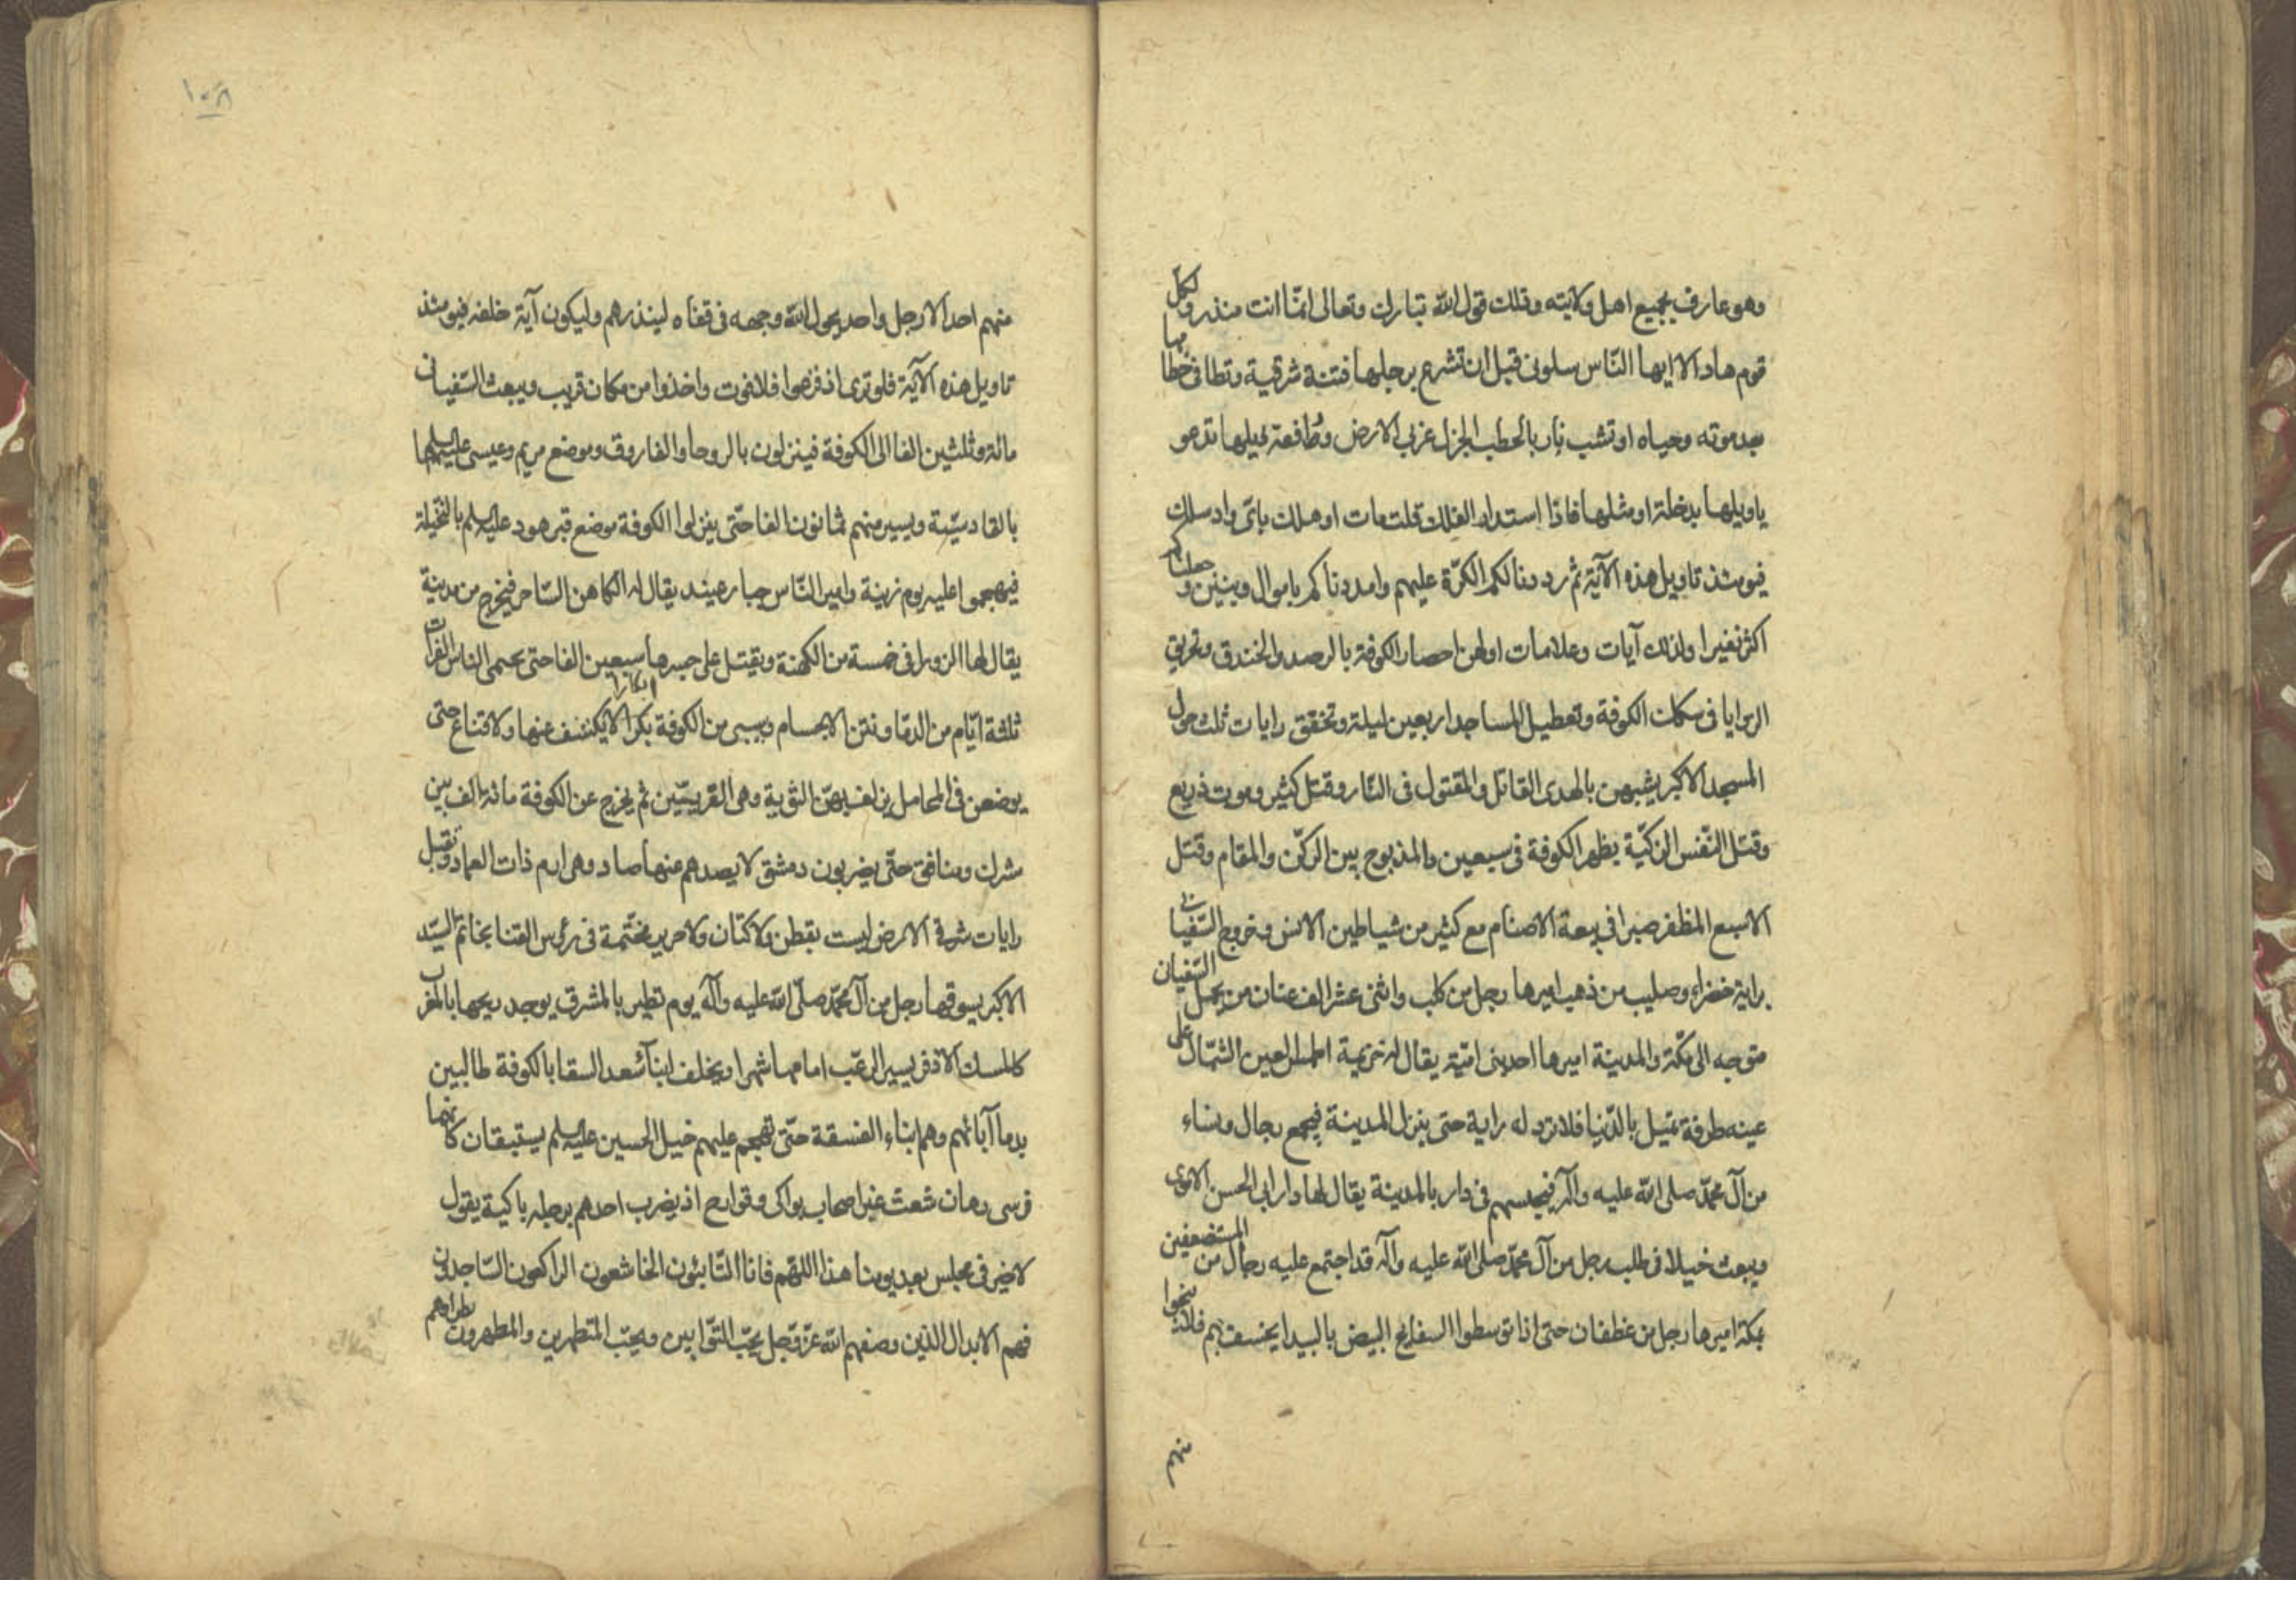 وهو عارف بجميع اهل ولايته وذلك قول الله تبارك وتعالى انما انت منذر ولكل
قوم هاد الا ايها الناس سلوني قبل ان تشرع برجلها فتنة شرقية وتطا في خطامها
بعد موته وحياه او تشب نار بالحطب الجزل غربي الارض رافعة ذيلها تدعو
يا ويلها بدخلة او مثلها فاذا استدار الفلك قلت مات او هلك باي واد سلك
فيومئذ تاويل هذه الآية ثم رددنا لكم الكرّة عليهم وامددناكم باموال وبنين وجعلناكم
اكثر نفيرا ولذلك آيات وعلامات اولهن احصار الكوفة بالرصد والخندق وتخريق
الزوايا في سكك الكوفة وتعطيل المساجد اربعين ليلة وتخفق رايات ثلث حول
المسجد الاكبر يشبهن بالهدى القاتل والمقتول في النّار وقتل كثير وموت ذريع
وقتل النّفس الزكيّة بظهر الكوفة في سبعين والمذبوح بين الركن والمقام وقتل
الاسبع المظفر صبرا في بيعة الاصنام مع كثير من شياطين الانس وخروج السّفياني
براية خضراء وصليب من ذهب اميرها رجل من كلب واثنى عشر الف عنان من يحمل السّفيان
متوجه الى مكّة والمدينة اميرها احد بني اميّة يقال له خزيمة اطمس العين الشّمال على
عينه طرفة تميل بالدّنيا فلا ترد له راية حتى ينزل المدينة فيجمع رجال ونساء
من آل محمّد صلى الله عليه وآله فيحبسهم في دار بالمدينة يقال لها دار ابي الحسن الاموى
ويبعث خيلا في طلب رجل من آل محمّد صلى الله عليه وآله قد اجتمع عليه رجال من المستضعفين
بمكة اميرها رجل من غطفان حتى اذا توسطوا السفايح البيض بالبيدا يخسف بهم فلا ينجوا
منهم
١٠٨
منهم احد الا رجل واحد يحول الله وجهه في قفاه لينذرهم وليكون آية خلفه فيومئذ
تاويل هذه الآية فلو ترى اذ فزعوا فلا فوت واخذوا من مكان قريب ويبعث السّفياني
مائة وثلثين الفا الى الكوفة فينزلون بالروحا والفاروق وموضع مريم وعيسى عليهما السلم
بالقادسيّة ويسير منهم ثمانون الفا حتّى ينزلوا الكوفة موضع قبر هود عليه السلم بالنخيلة
فيهجموا عليه يوم زينة وامير النّاس جبار عنيد يقال له الكاهن السّاحر فيخرج من مدينة
يقال لها الزورا في خمسة من الكهنة ويقتل على جسرها سبعين الفا حتى يحمى الناس الفرات
ثلثة ايّام من الدما ونتن الاجسام ويسبى من الكوفة بكرا ابكارا لا يكشف عنها ولا قناع حتى
يوضعن في المحامل يزلف بهنّ الثوية وهي الغريّين ثم يخرج عن الكوفة مائة الف بين
مشرك ومنافق حتّى يضربون دمشق لا يصدهم عنها صاد وهى ارم ذات العماد وتقبل
رايات شرقي الارض ليست بقطن ولا كتّان ولا حرير مختّمة في رؤس القنا بخاتم السيّد
الاكبر يسوقها رجل من آل محمّد صلّى الله عليه وآله يوم تطير بالمشرق يوجد ريحها بالمغرب
كالمسك الاذفر يسير الرعب امامها شهرا ويخلف ابنآء سعد السقا بالكوفة طالبين
بدما آبائهم وهم ابناء الفسقة حتّى تهجم عليهم خيل الحسين عليه السلم يستبقان كانهما
فرسى رهان شعث غبر اصحاب بواكى وقوارح اذ يضرب احدهم برجله باكية يقول
لا خير في مجلس بعد يومنا هذا اللهم فانا التّائبون الخاشعون الراكعون السّاجدون
فهم الابدال الذين وصفهم الله عزّ وجل يحبّ التوّابين ويحبّ المتطهرين والمطهرون نظراؤهم